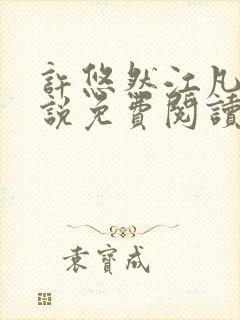 許悠然江凡
說免費閱讀
袁寶成